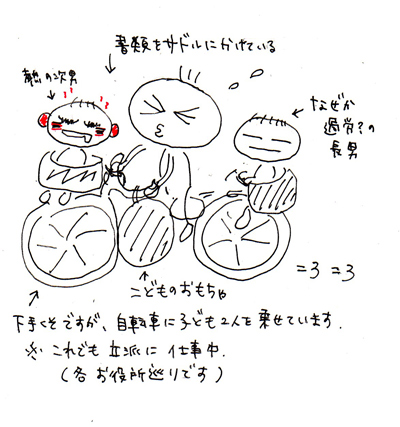 書類をサドルにかけている
の次男
なぜか
過労?の
長男
こどものおもちゃ
=3 =3
下手くそですが、自転車に子ども2人を乗せています.
※ これでも立派に仕事中.
(各お役所巡りです)